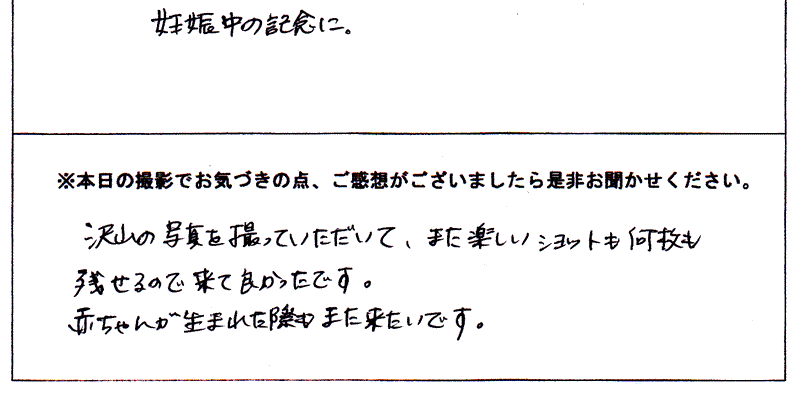 妊娠中の記念に。
※本日の撮影でお気づきの点、ご感想がございましたら是非お聞かせください。
沢山の写真を撮っていただいて、また楽しいショットも何枚も
残せるので来て良かったです。
赤ちゃんが生まれた際もまた来たいです。